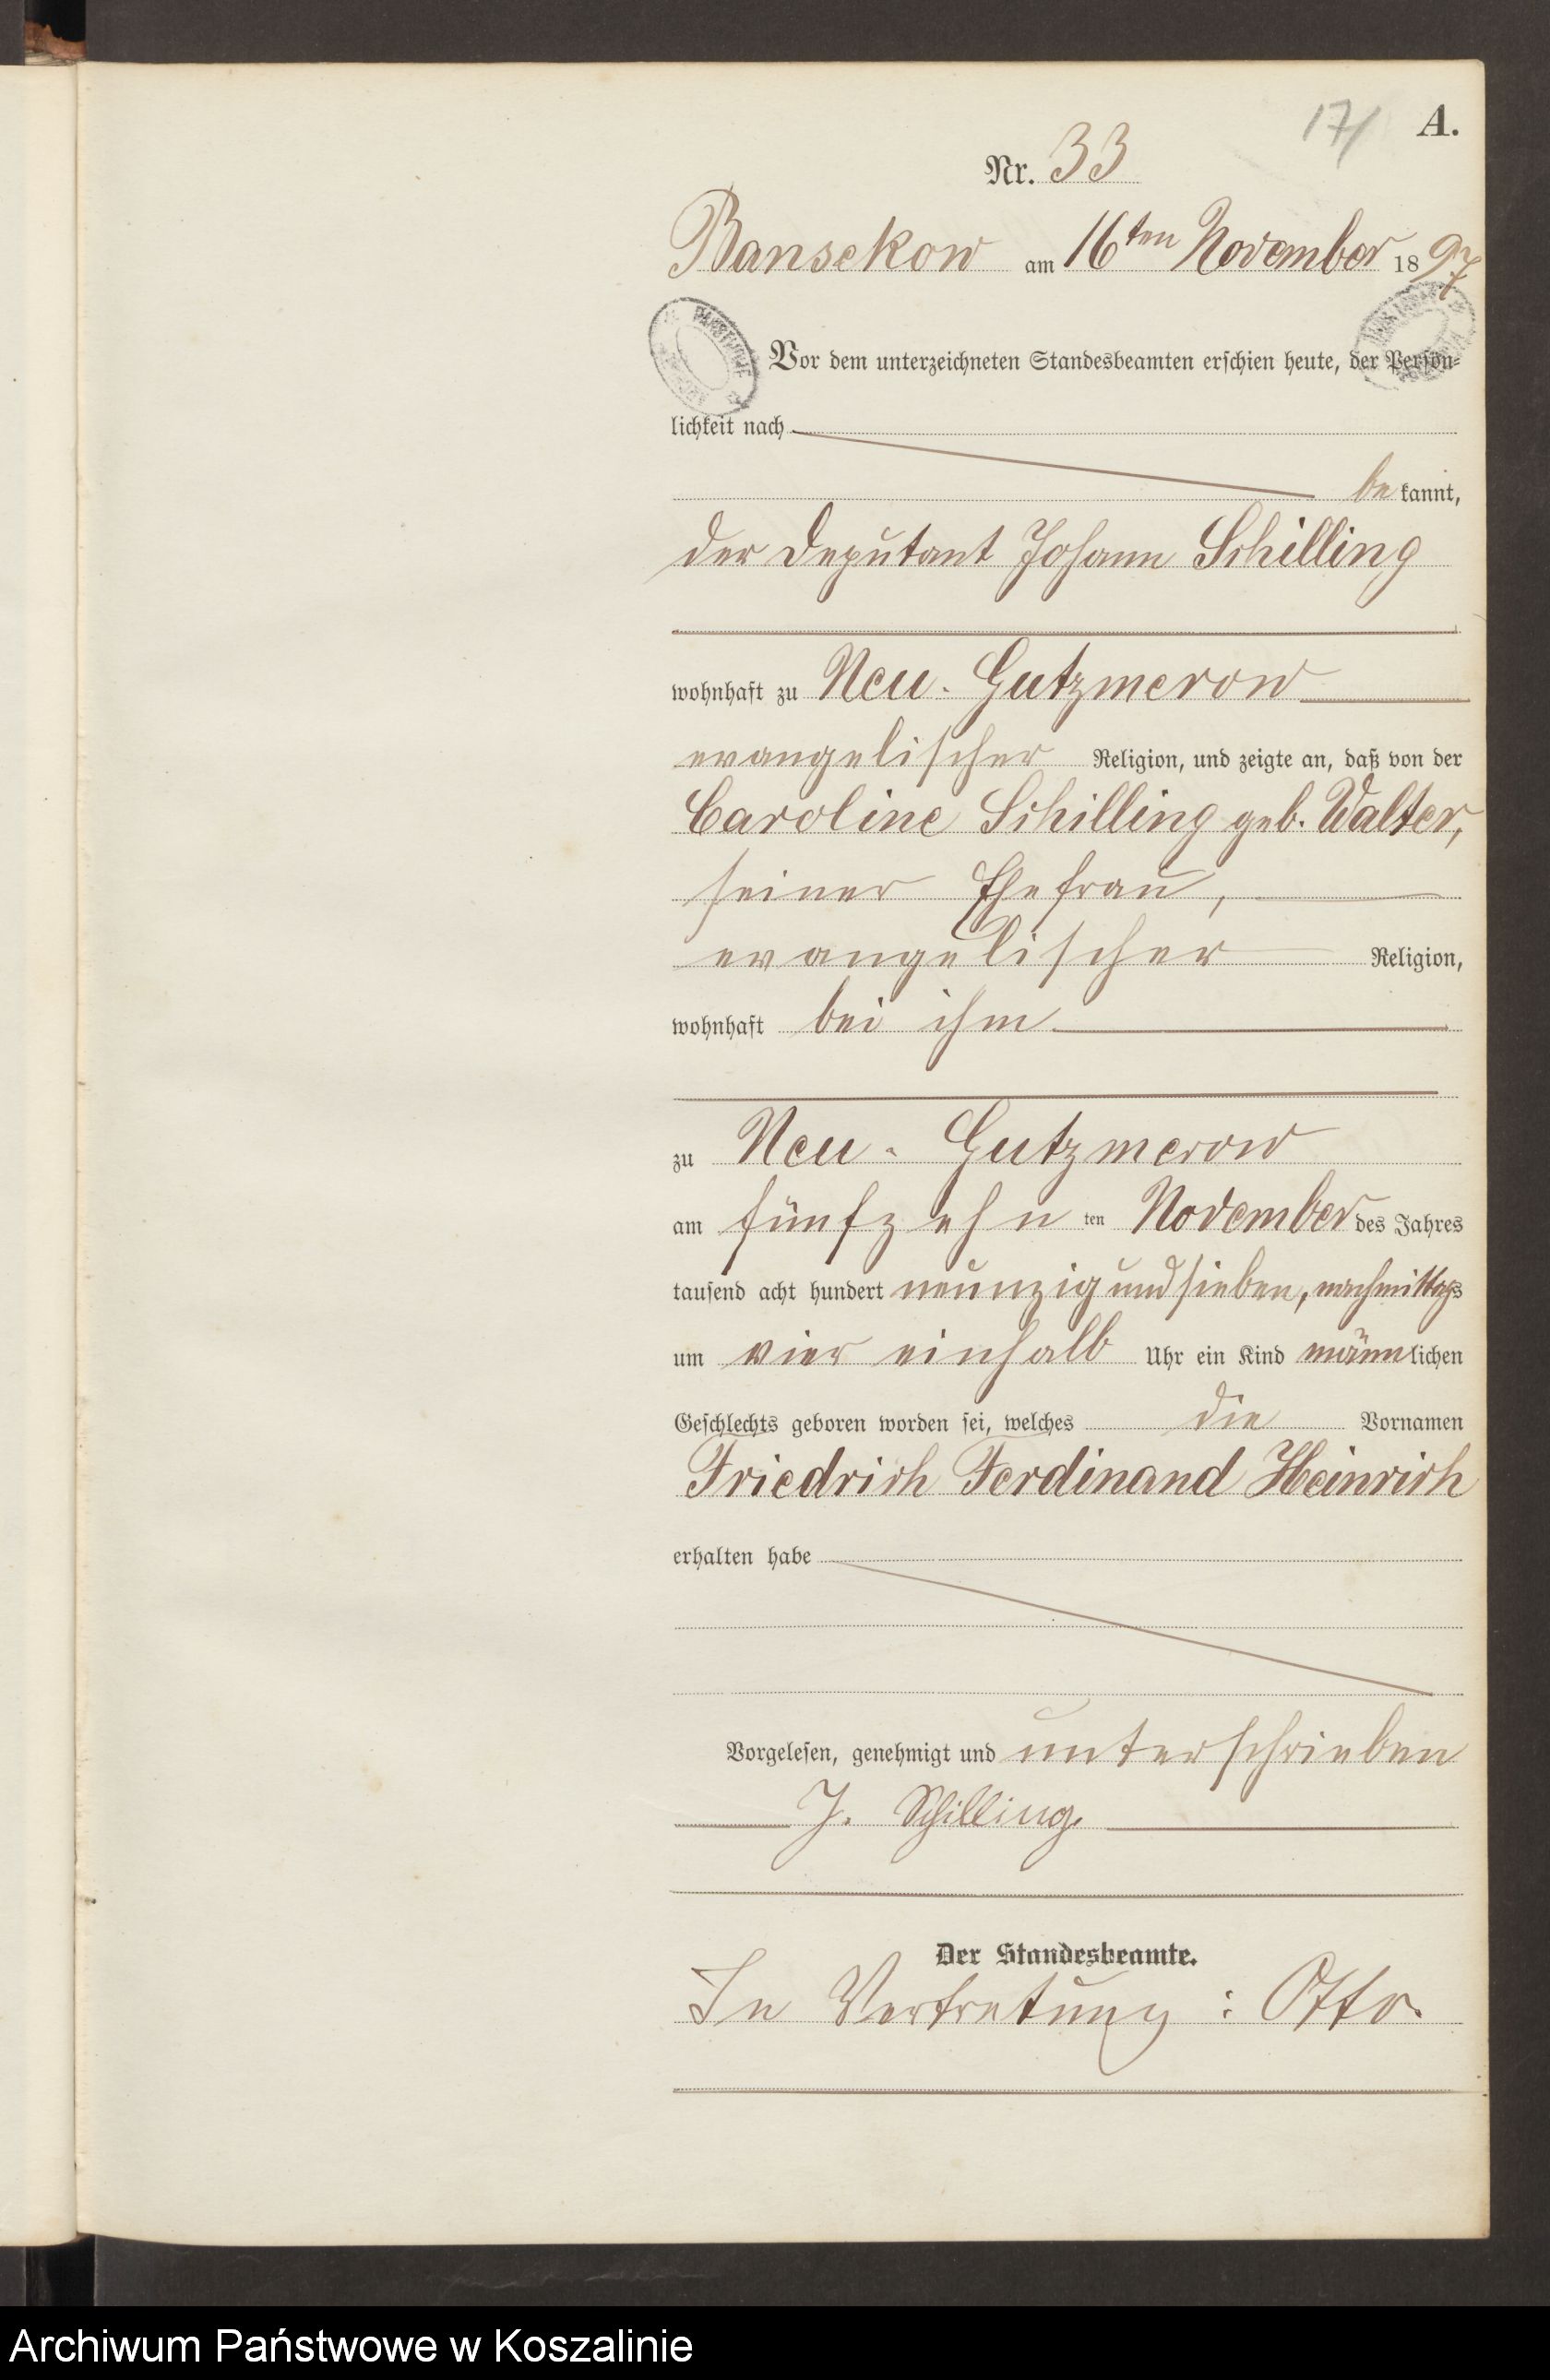 17
A.
Nr. 33
Bansekow am 16ten November 1897
Vor dem unterzeichneten Standesbeamten erschien heute, der Persön-
lichkeit nach
be kannt,
der Deputant Johann Schilling
wohnhaft zu Neu-Gutzmerow
evangelischer Religion, und zeigte an, daß von der
Caroline Schilling geb. Walter,
seiner Ehefrau,
evangelischer Religion,
wohnhaft bei ihm
zu Neu-Gutzmerow
am fünfzehn ten November des Jahres
tausend acht hundert neunzig und sieben, nachmittags
um vier einhalb Uhr ein Kind männlichen
Geschlechts geboren worden sei, welches die Vornamen
Friedrich Ferdinand Heinrich
erhalten habe
Vorgelesen, genehmigt und unterschrieben
J. Schilling.
Der Standesbeamte.
In Vertretung: Otto.
Archiwum Państwowe w Koszalinie